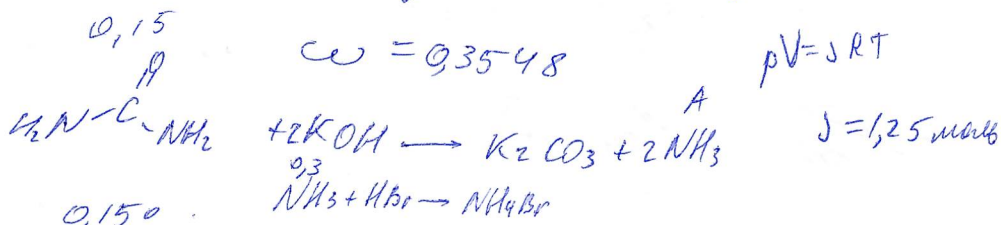 0,15
ω = 0,3548
pV=νRT
O
H₂N-C-NH₂ +2KOH → K₂CO₃ + 2NH₃
A
ν = 1,25 моль
0,3
NH₃ + HBr → NH₄Br
0,150